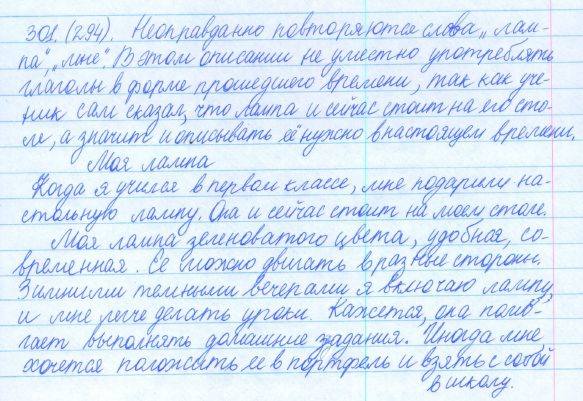 301. (294). Неоправданно повторяются слова „лам-
па", „мне". В этом описании не уместно употреблять
глаголы в форме прошедшего времени, так как уче-
ник сам сказал, что лампа и сейчас стоит на его сто-
ле, а значит и описывать её нужно в настоящем времени.
Моя лампа
Когда я учился в первом классе, мне подарили на-
стольную лампу. Она и сейчас стоит на моем столе.
Моя лампа зеленоватого цвета, удобная, со-
временная. Ее можно двигать в разные стороны.
Зимними темными вечерами я включаю лампу,
и мне легче делать уроки. Кажется, она помо-
гает выполнять домашние задания. Иногда мне
хочется положить ее в портфель и взять с собой
в школу.